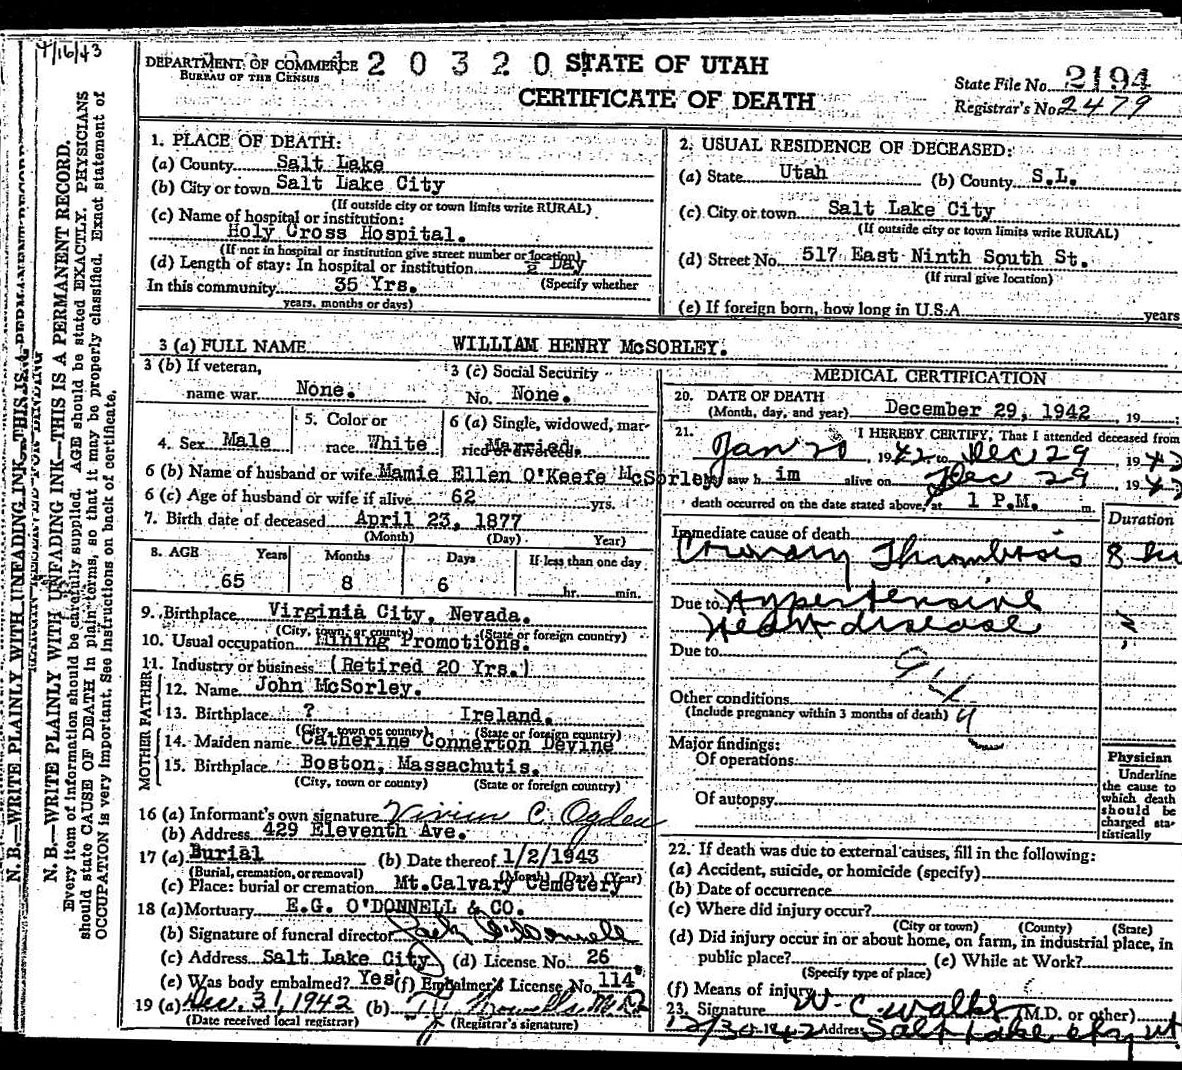 4/16/43
N.B.—WRITE PLAINLY WITH UNFADING INK—THIS IS A PERMANENT RECORD.
Every item of information should be carefully supplied. AGE should be stated EXACTLY. PHYSICIANS
should state CAUSE OF DEATH in plain terms, so that it may be properly classified. Exact statement of
OCCUPATION is very important. See instructions on back of certificate.
DEPARTMENT OF COMMERCE 2 0 3 2 0 STATE OF UTAH
BUREAU OF THE CENSUS
CERTIFICATE OF DEATH
State File No. 2194
Registrar's No. 2479
1. PLACE OF DEATH:
(a) County Salt Lake
(b) City or town Salt Lake City
(If outside city or town limits write RURAL)
(c) Name of hospital or institution:
Holy Cross Hospital.
(If not in hospital or institution give street number or location)
(d) Length of stay: In hospital or institution ½ Day
In this community 35 Yrs. (Specify whether
years, months or days)
2. USUAL RESIDENCE OF DECEASED:
(a) State Utah (b) County S.L.
(c) City or town Salt Lake City
(If outside city or town limits write RURAL)
(d) Street No. 517 East Ninth South St.
(If rural give location)
(e) If foreign born, how long in U.S.A. years
3 (a) FULL NAME WILLIAM HENRY McSORLEY.
3 (b) If veteran,
name war None.
3 (c) Social Security
No. None.
4. Sex Male
5. Color or
race White
6 (a) Single, widowed, mar-
ried or divorced. Married.
6 (b) Name of husband or wife Mamie Ellen O'Keefe McSorley
6 (c) Age of husband or wife if alive 62 yrs.
7. Birth date of deceased April 23, 1877
(Month) (Day) Year)
8. AGE Years Months Days If less than one day
65 8 6 hr. min.
9. Birthplace Virginia City, Nevada.
(City, town, or county) (State or foreign country)
10. Usual occupation Mining Promotions.
11. Industry or business (Retired 20 Yrs.)
FATHER
12. Name John McSorley.
13. Birthplace ? Ireland.
(City, town or county) (State or foreign country)
MOTHER
14. Maiden name Catherine Connerton Devine
15. Birthplace Boston, Massachutis.
(City, town or county) (State or foreign country)
16 (a) Informant's own signature Vivian C. Ogden
(b) Address 429 Eleventh Ave.
17 (a) Burial (b) Date thereof 1/2/1943
(Burial, cremation, or removal) (Month) (Day) (Year)
(c) Place: burial or cremation Mt.Calvary Cemetery
18 (a) Mortuary E.G. O'DONNELL & CO.
(b) Signature of funeral director Jack O'Donnell
(c) Address Salt Lake City (d) License No. 26
(e) Was body embalmed? Yes (f) Embalmer's License No. 114
19 (a) Dec. 31, 1942 (b)
(Date received local registrar) (Registrar's signature)
MEDICAL CERTIFICATION
20. DATE OF DEATH
(Month, day, and year) December 29, 1942 19
21. I HEREBY CERTIFY, That I attended deceased from
Jan 20, 1942 to Dec 29 1942
saw h im alive on Dec 29 1942
death occurred on the date stated above, at 1 P.M. m.
Duration
Immediate cause of death
Coronary Thrombosis 8 hr
Due to Hypertensive
Heart disease
Due to
94
Other conditions
(Include pregnancy within 3 months of death)
Major findings:
Of operations
Of autopsy
Physician
Underline
the cause to
which death
should be
charged sta-
tistically
22. If death was due to external causes, fill in the following:
(a) Accident, suicide, or homicide (specify)
(b) Date of occurrence
(c) Where did injury occur?
(City or town) (County) (State)
(d) Did injury occur in or about home, on farm, in industrial place, in
public place? (e) While at Work?
(Specify type of place)
(f) Means of injury
23. Signature W. C. Walker (M.D. or other)
12/30 1942 Address Salt Lake City Ut